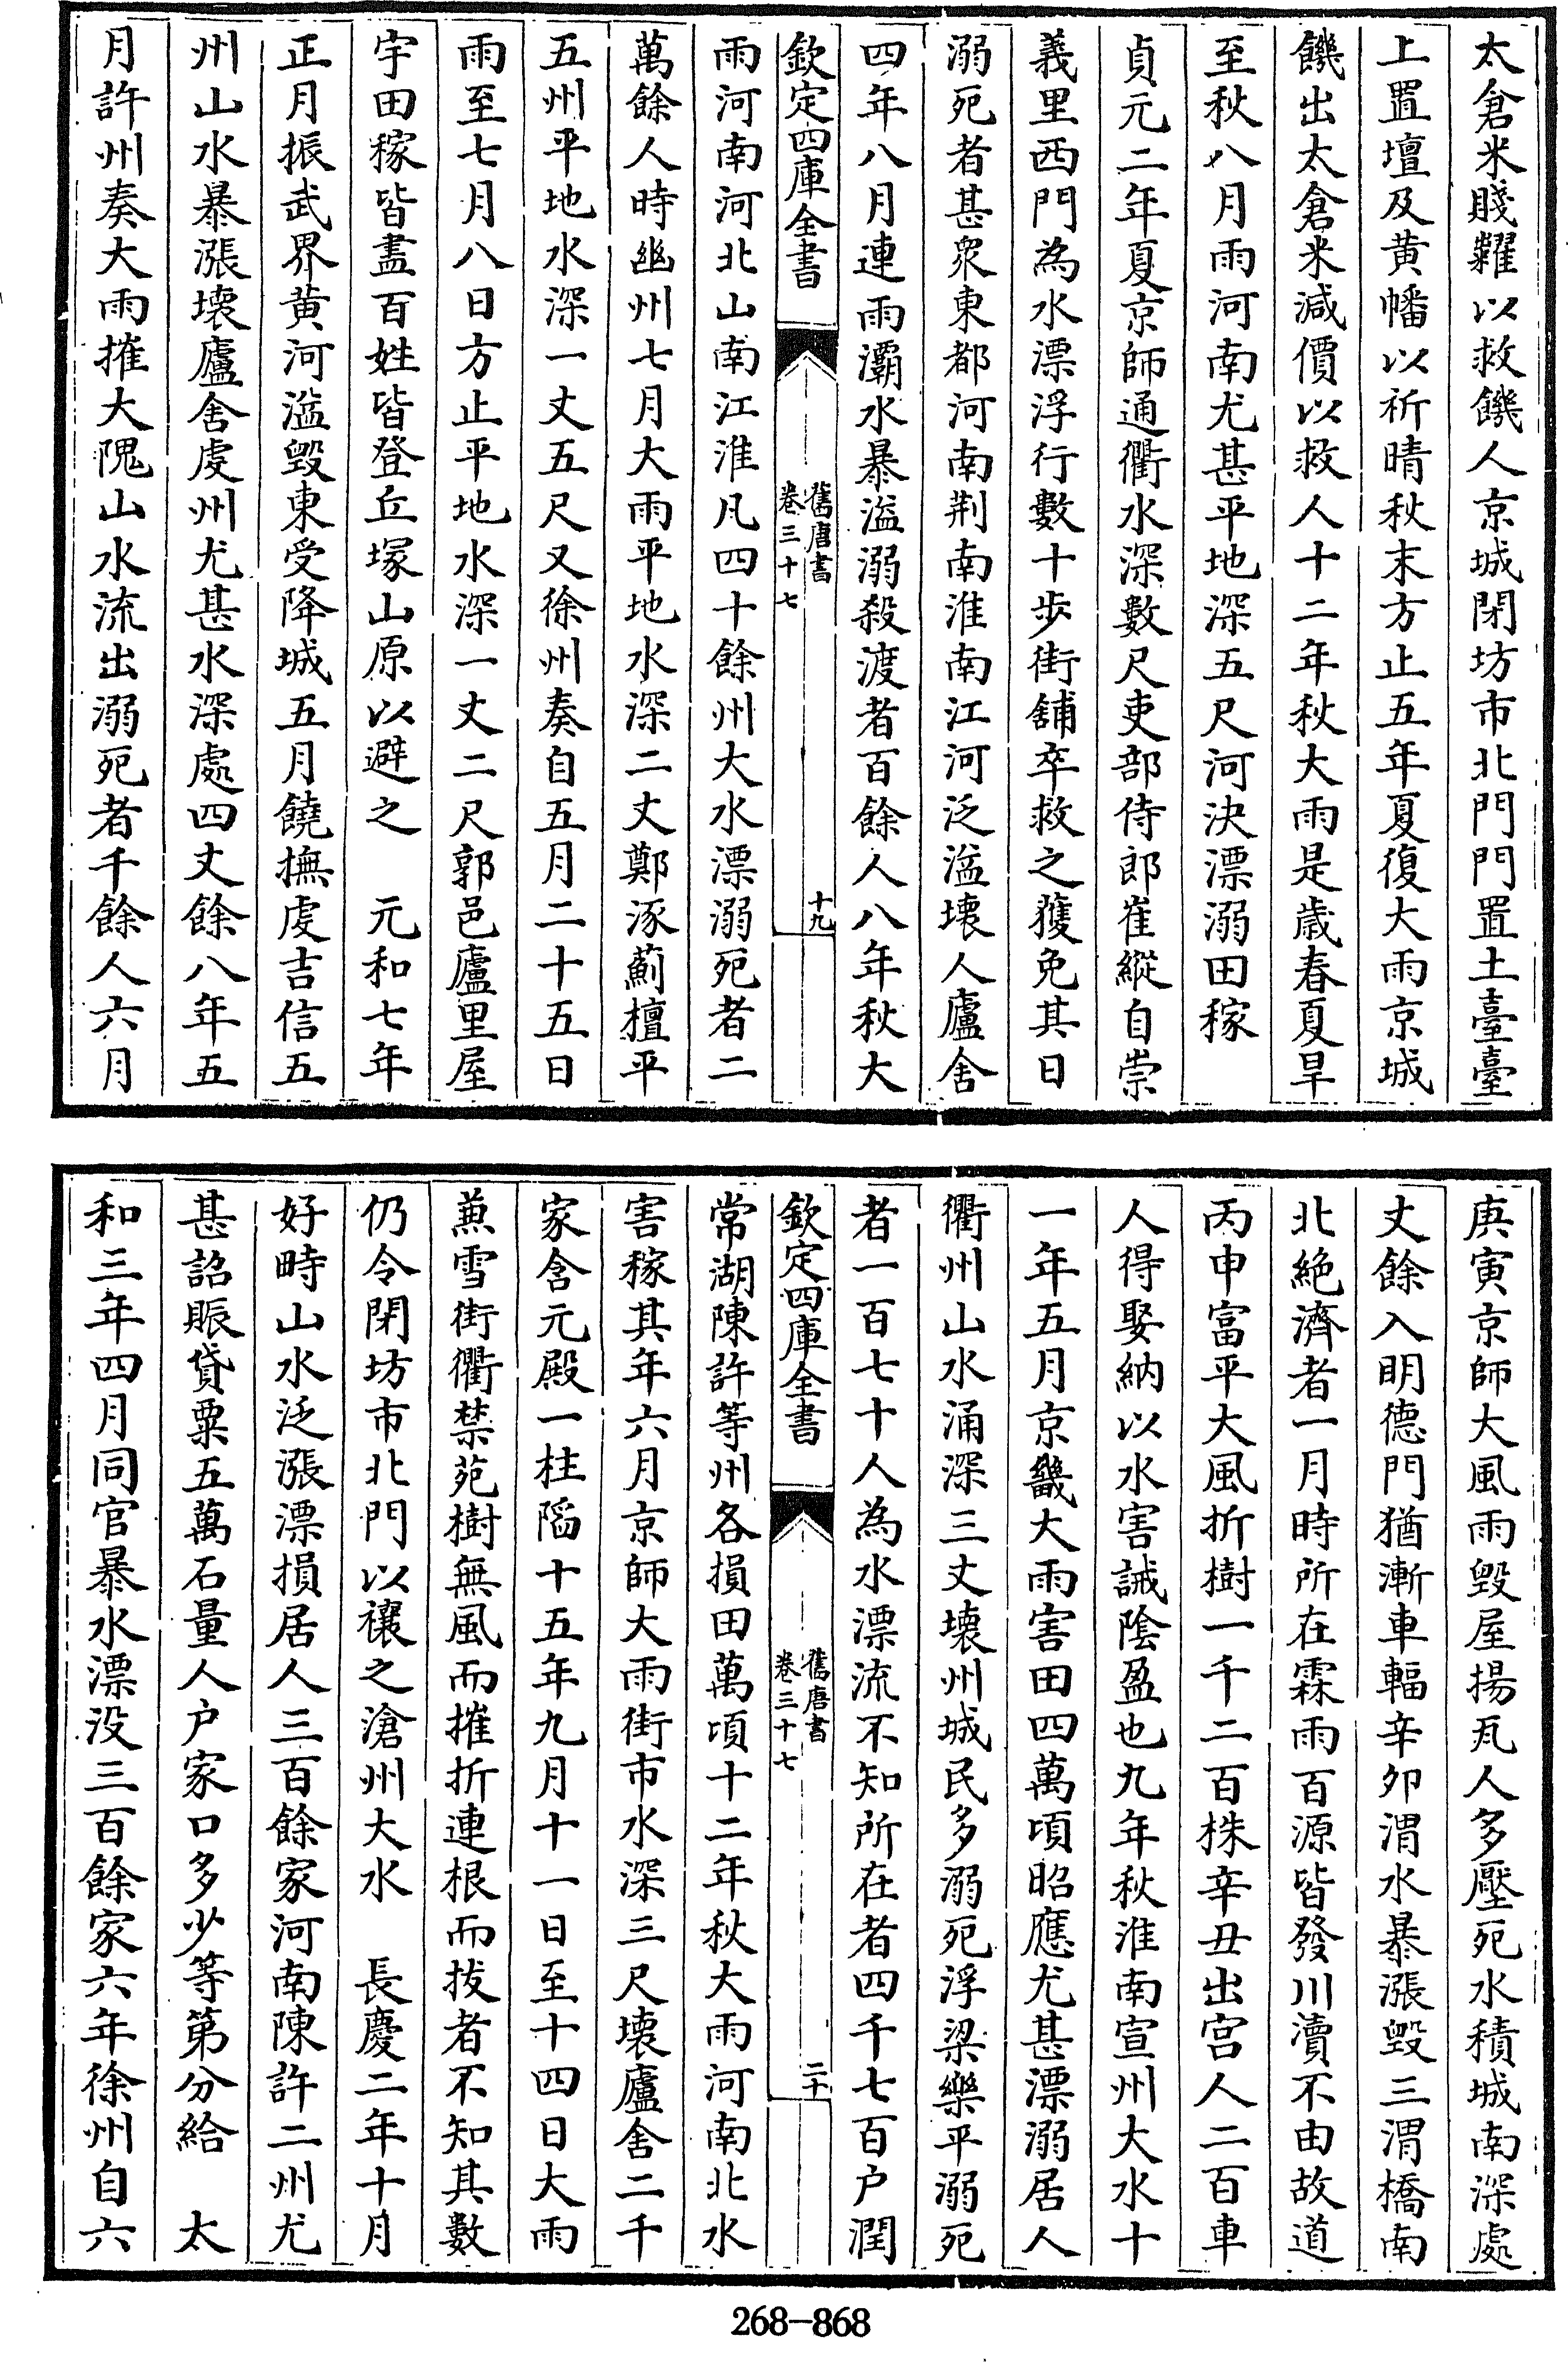 太倉米賤糶以救饑人京城閉坊市北門門置土臺臺
上置壇及黄幡以祈晴秋末方止五年夏復大雨京城
饑出太倉米減價以救人十二年秋大雨是歲春夏旱
至秋八月雨河南尤甚平地深五尺河決漂溺田稼
貞元二年夏京師通衢水深數尺吏部侍郎崔縱自崇
義里西門為水漂浮行數十步街舖卒救之獲免其日
溺死者甚衆東都河南荆南淮南江河泛溢壊人廬舍
四年八月連雨灞水暴溢溺殺渡者百餘人八年秋大
欽定四庫全書
舊唐書
卷三十七
十九
雨河南河北山南江淮凡四十餘州大水漂溺死者二
萬餘人時幽州七月大雨平地水深二丈鄭涿薊檀平
五州平地水深一丈五尺又徐州奏自五月二十五日
雨至七月八日方止平地水深一丈二尺郭邑廬里屋
宇田稼皆盡百姓皆登丘塚山原以避之　元和七年
正月振武界黄河溢毁東受降城五月饒撫虔吉信五
州山水暴漲壊廬舍虔州尤甚水深處四丈餘八年五
月許州奏大雨摧大隗山水流出溺死者千餘人六月
庚寅京師大風雨毁屋揚瓦人多壓死水積城南深處
丈餘入明德門猶漸車輻辛卯渭水暴漲毁三渭橋南
北絶濟者一月時所在霖雨百源皆發川瀆不由故道
丙申富平大風折樹一千二百株辛丑出宫人二百車
人得娶納以水害誡陰盈也九年秋淮南宣州大水十
一年五月京畿大雨害田四萬頃昭應尤甚漂溺居人
衢州山水涌深三丈壊州城民多溺死浮梁樂平溺死
者一百七十人為水漂流不知所在者四千七百户潤
欽定四庫全書
舊唐書
卷三十七
二十
常湖陳許等州各損田萬頃十二年秋大雨河南北水
害稼其年六月京師大雨街市水深三尺壊廬舍二千
家含元殿一柱䧟十五年九月十一日至十四日大雨
兼雪街衢禁苑樹無風而摧折連根而拔者不知其數
仍令閉坊市北門以禳之滄州大水　長慶二年十月
好畤山水泛漲漂損居人三百餘家河南陳許二州尤
甚詔賑貸粟五萬石量人户家口多少等第分給　太
和三年四月同官暴水漂没三百餘家六年徐州自六
268-868